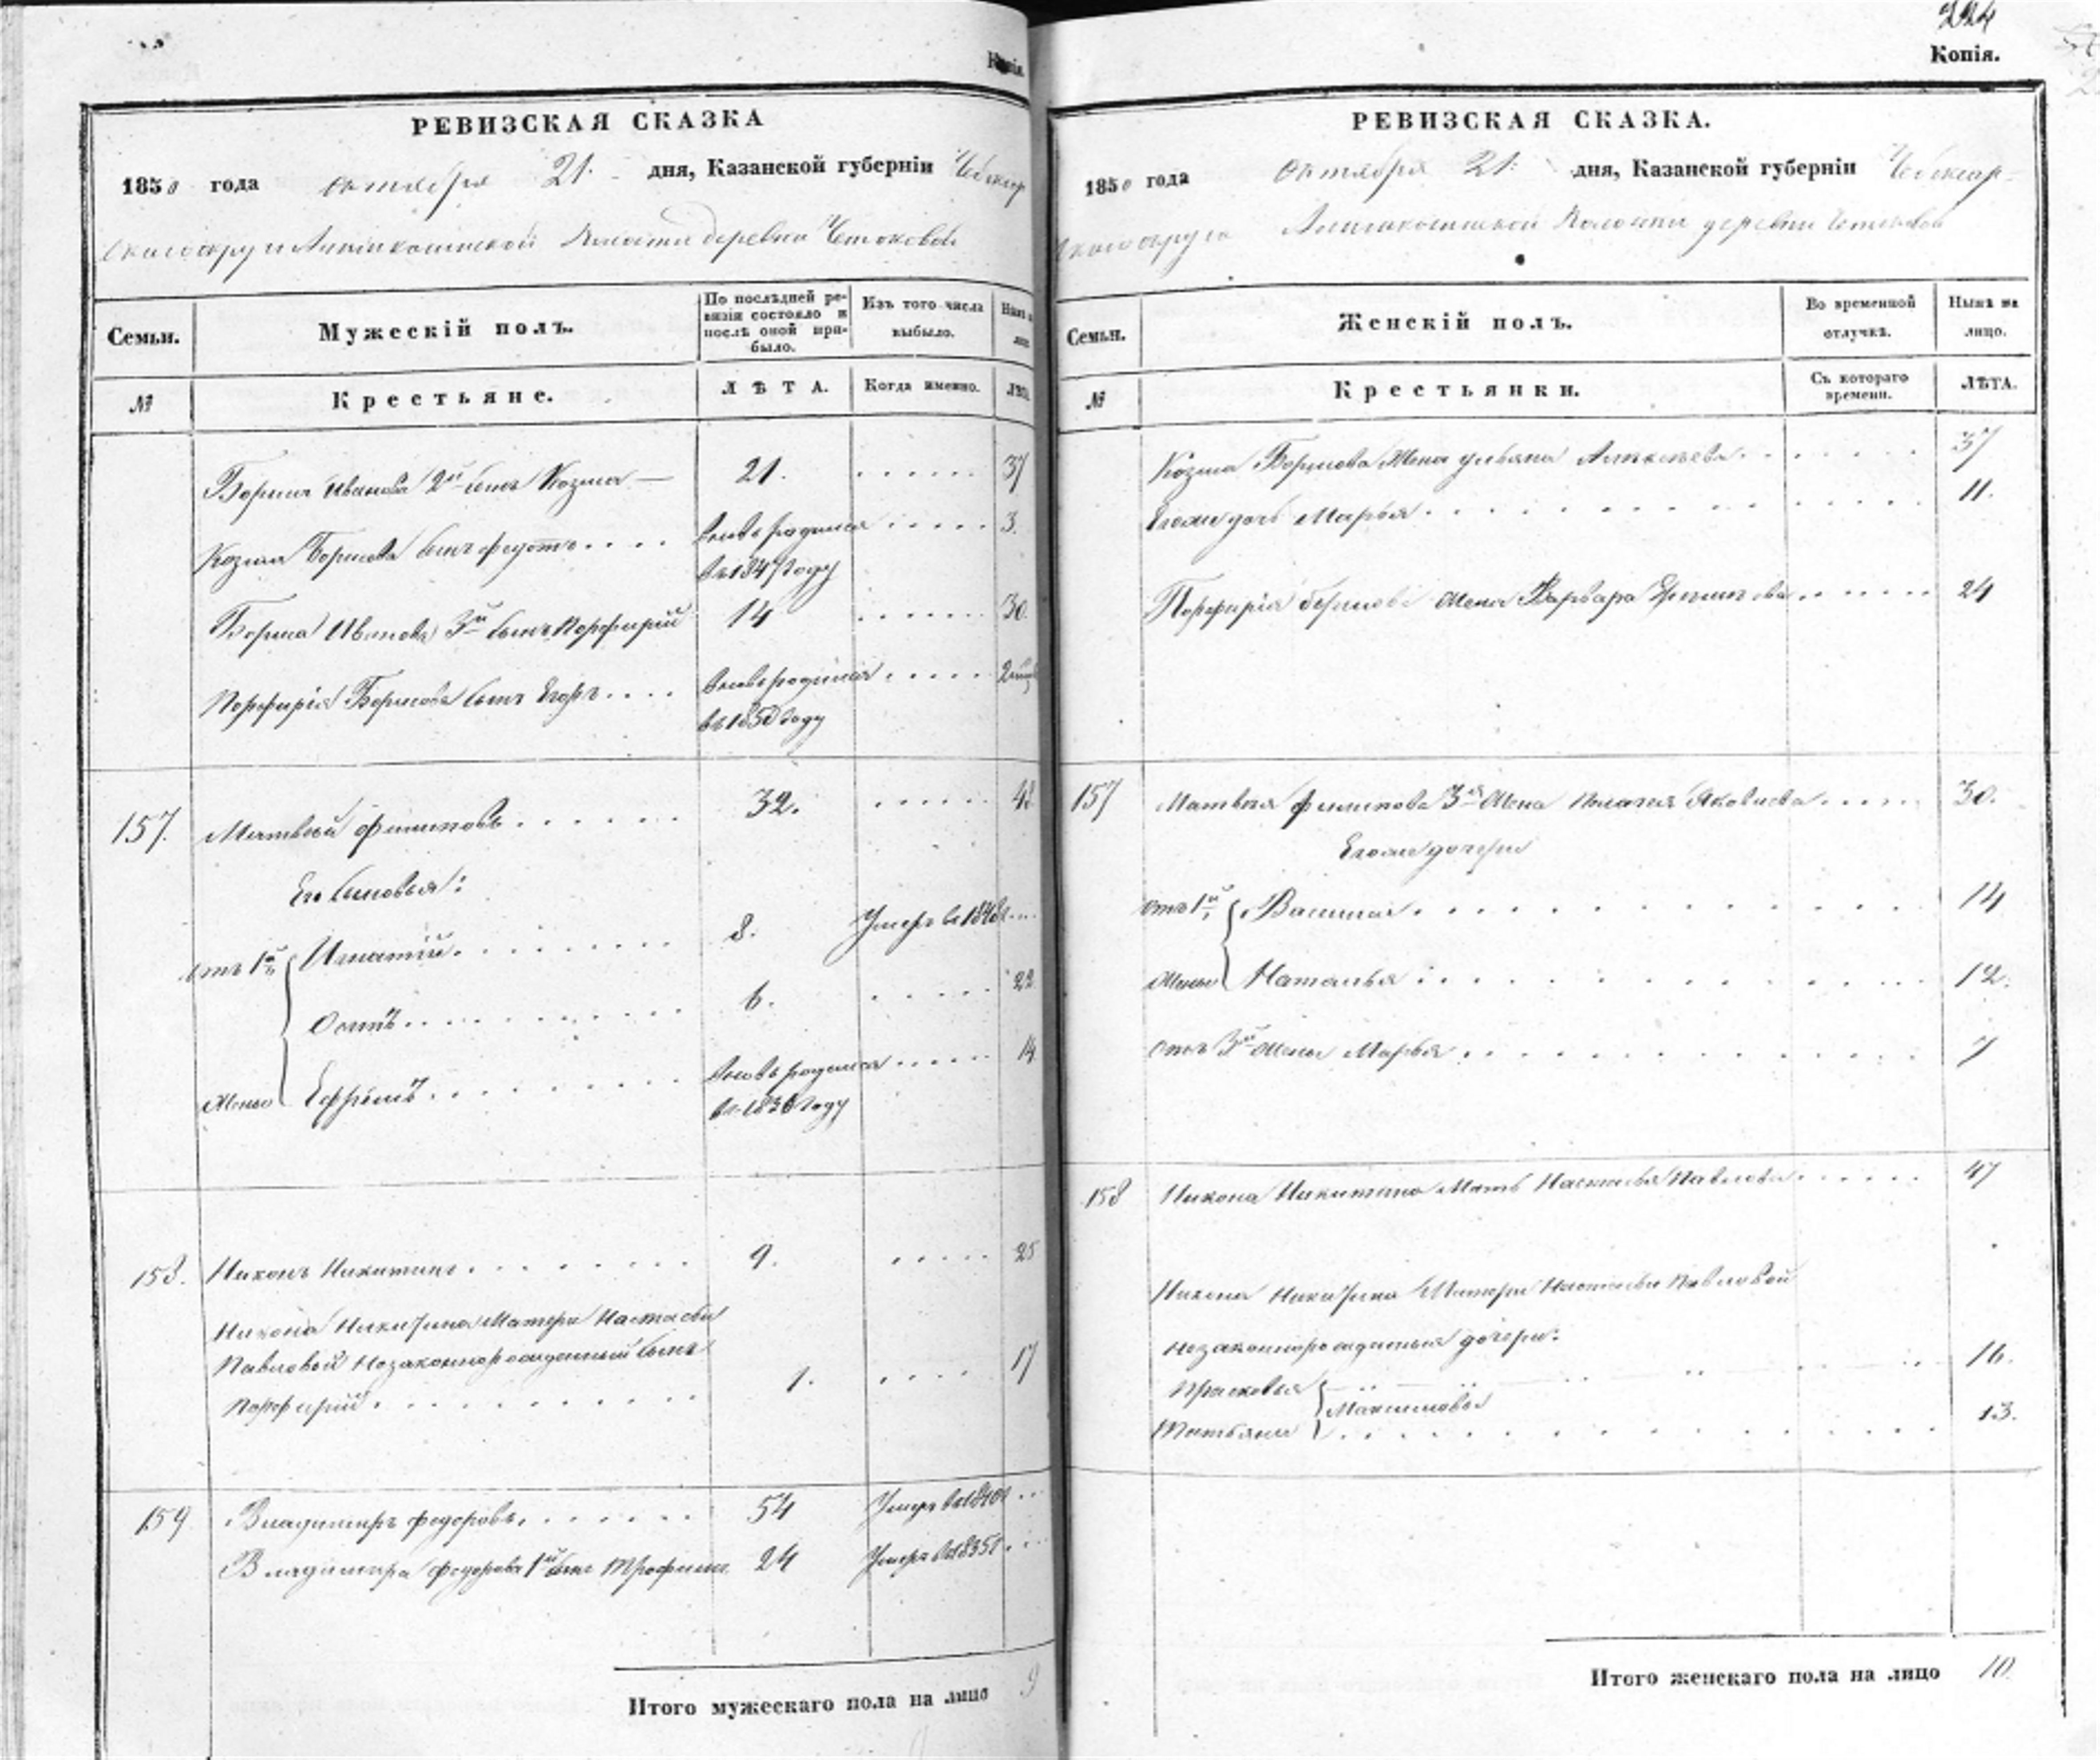 Копія.
РЕВИЗСКАЯ СКАЗКА
1850 года октября 21. дня, Казанской губерніи Чебоксар
скаго округа волости деревни
Семьи.
Мужескій полъ.
По послѣдней ре-
визіи состояло и
послѣ оной при-
было.
Изъ того числа
выбыло.
№
Крестьяне.
ЛѢТА.
Когда именно.
Бориса Иванова 2й сынъ Козма — 21. 37
Козма Борисова сынъ Федотъ вновь родился 3.
въ 1847 году
Бориса Иванова 3й сынъ Порфирій 14 30.
Порфирія Борисова сынъ Егоръ вновь родился
въ 1850 году
157. Матвей Филиповъ 32. 48
Его сыновья:
отъ 1й Игнатій 8. Умеръ въ 1840г.
Осипъ 6. 22
жены Ефремъ вновь родился 14
въ 1836 году
158. Никонъ Никитинъ 9. 25
Никона Никитина Матери Настасьи
Павловой незаконнорожденный сынъ
Порфирій 1. 17
159 Владимиръ Федоровъ 54 Умеръ въ 1840г
Владимира Федорова 1й сынъ Трофимъ 24 Умеръ въ 1835г.
Итого мужескаго пола на лицо 9
224
Копія.
РЕВИЗСКАЯ СКАЗКА.
1850 года октября 21. дня, Казанской губерніи Чебоксар-
скаго округа волости деревни
Семьи.
Женскій полъ.
Во временной
отлучкѣ.
Нынѣ на
лицо.
№
Крестьянки.
Съ котораго
времени.
ЛѢТА.
Козма Борисова Жена Ульяна Алексѣева 37
Егоже дочь Марья 11.
Порфирія Борисова жена Варвара 24
157 Матвея Филипова 3я жена Пелагея Яковлева 30.
Егоже дочери
отъ 1й Василиса 14
жены Наталья 12.
отъ 3й жены Марья 7
158 Никона Никитина Мать Настасья Павлова 47
Никона Никитина Матери Настасьи Павловой
незаконнорожденныя дочери:
Прасковья 16.
Максимовы
Татьяна 13.
Итого женскаго пола на лицо 10.